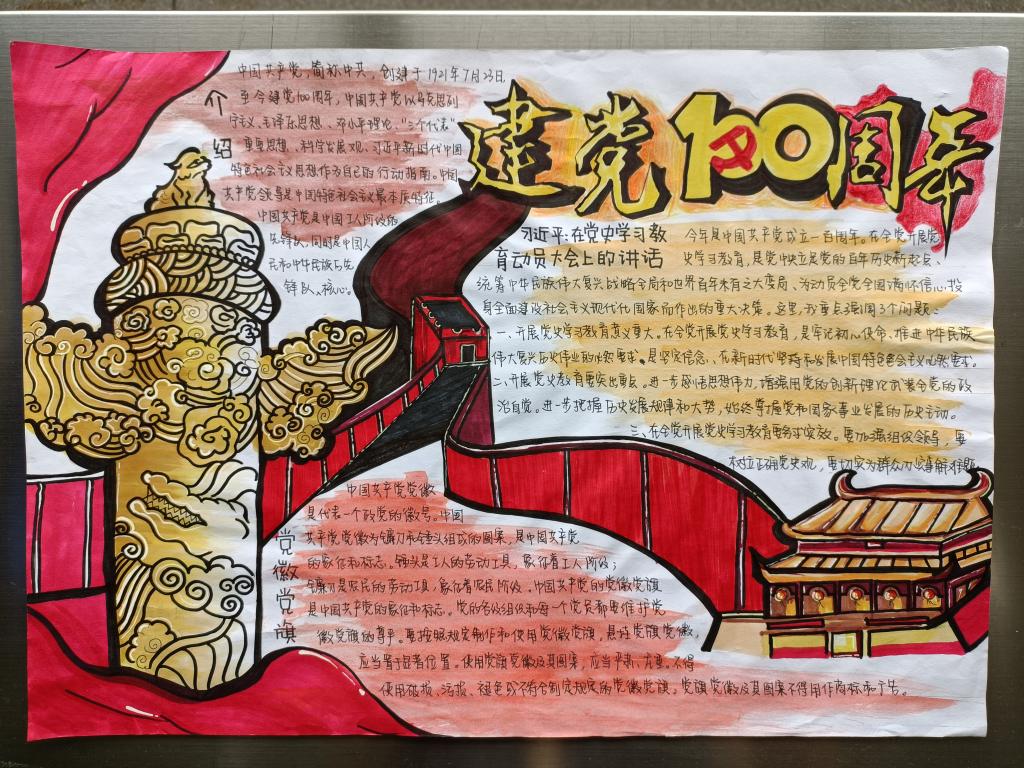 建党100周年
介绍
中国共产党,简称中共,创建于1921年7月23日
至今建党100周年,中国共产党以马克思列
宁主义、毛泽东思想、邓小平理论、“三个代表”
重要思想、科学发展观、习近平新时代中国
特色社会主义思想作为自己的行动指南。中国
共产党领导是中国特色社会主义最本质特征。
中国共产党是中国工人阶级的
先锋队,同时是中国人
民和中华民族的先
锋队、核心。
习近平:在党史学习教
育动员大会上的讲话
今年是中国共产党成立一百周年。在全党开展党
史学习教育,是党中央立足党的百年历史新起点、
统筹中华民族伟大复兴战略全局和世界百年未有之大变局、为动员全党全国满怀信心投
身全面建设社会主义现代化国家而作出的重大决策。这里,我重点强调3个问题:
一、开展党史学习教育意义重大。在全党开展党史学习教育,是牢记初心使命、推进中华民族
伟大复兴历史伟业的必然要求。是坚定信念、在新时代坚持和发展中国特色社会主义必然要求。
二、开展党史教育要突出重点。进一步感悟思想伟力,增强用党的创新理论武装全党的政
治自觉。进一步把握历史发展规律和大势,始终掌握党和国家事业发展的历史主动。
三、在全党开展党史学习教育要务求实效。要加强组织领导,要
树立正确党史观,要切实为群众办实事解难题
党徽党旗
中国共产党党徽
是代表一个政党的徽号。中国
共产党党徽为镰刀和锤头组成的图案,是中国共产党
的象征和标志。锤头是工人的劳动工具,象征着工人阶级;
镰刀是农民的劳动工具,象征着农民阶级。中国共产党的党徽党旗
是中国共产党的象征和标志。党的各级组织和每一个党员都要维护党
徽党旗的尊严。要按照规定制作和使用党徽党旗。悬挂党旗党徽,
应当置于显著位置。使用党旗党徽及其图案,应当严肃、庄重。不得
使用破损、污损、褪色或不符合制定规定的党徽党旗。党旗党徽及其图案不得用作商标和广告。